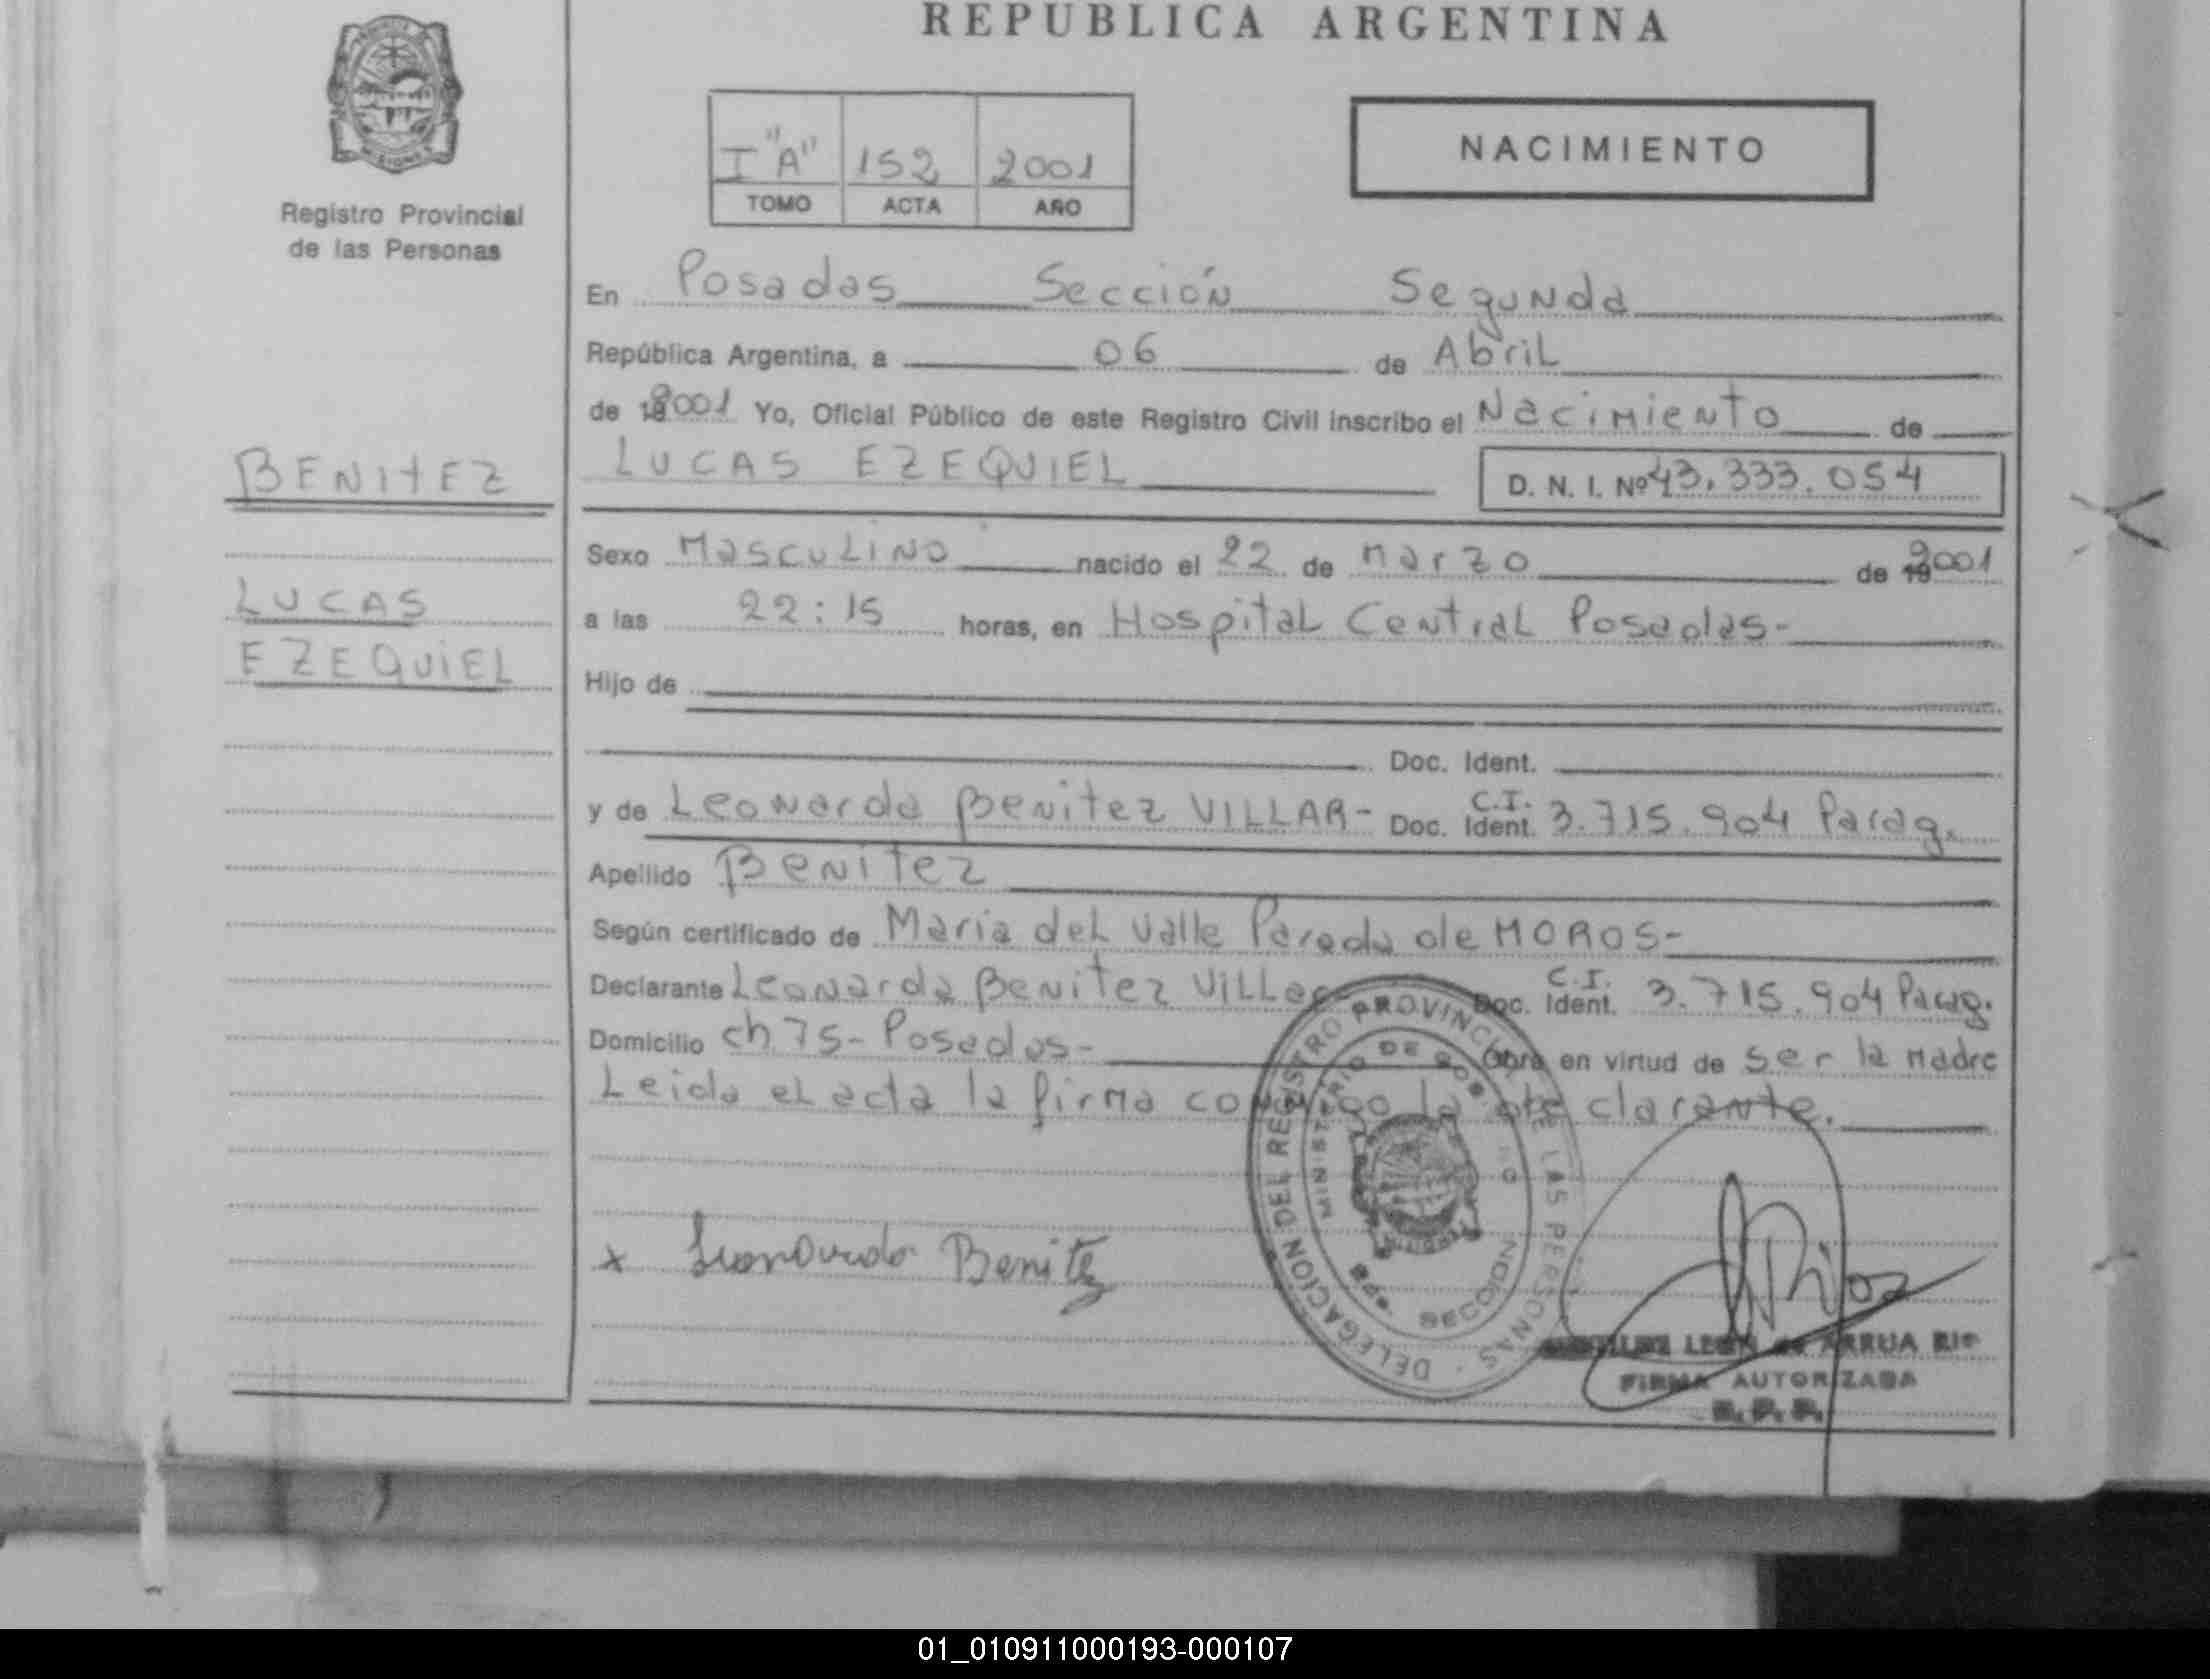 REPUBLICA ARGENTINA
MISIONES
Registro Provincial
de las Personas
I "A" 152 2001
TOMO ACTA AÑO
NACIMIENTO
En Posadas Sección Segunda
República Argentina, a 06 de Abril
de 2001 Yo, Oficial Público de este Registro Civil inscribo el Nacimiento de
BENITEZ
LUCAS EZEQUIEL D. N. I. Nº 43.333.054
Sexo Masculino nacido el 22 de Marzo de 2001
LUCAS
EZEQUIEL
a las 22:15 horas, en Hospital Central Posadas-
Hijo de
Doc. Ident.
y de Leonarda Benitez VILLAR- C.I. Doc. Ident. 3.715.904 Parag.
Apellido Benitez
Según certificado de Maria del Valle Parada de MOROS-
Declarante Leonarda Benitez Villar C.I. Doc. Ident. 3.715.904 Parag.
Domicilio ch 75- Posadas- Obra en virtud de ser la madre
Leida el acta la firma conmigo la declarante.
DELEGACION DEL REGISTRO PROVINCIAL DE LAS PERSONAS
MINISTERIO DE GOBIERNO
SECCION
x Leonarda Benitez
LEON de ARRUA
FIRMA AUTORIZADA
R. P. P.
01_010911000193-000107